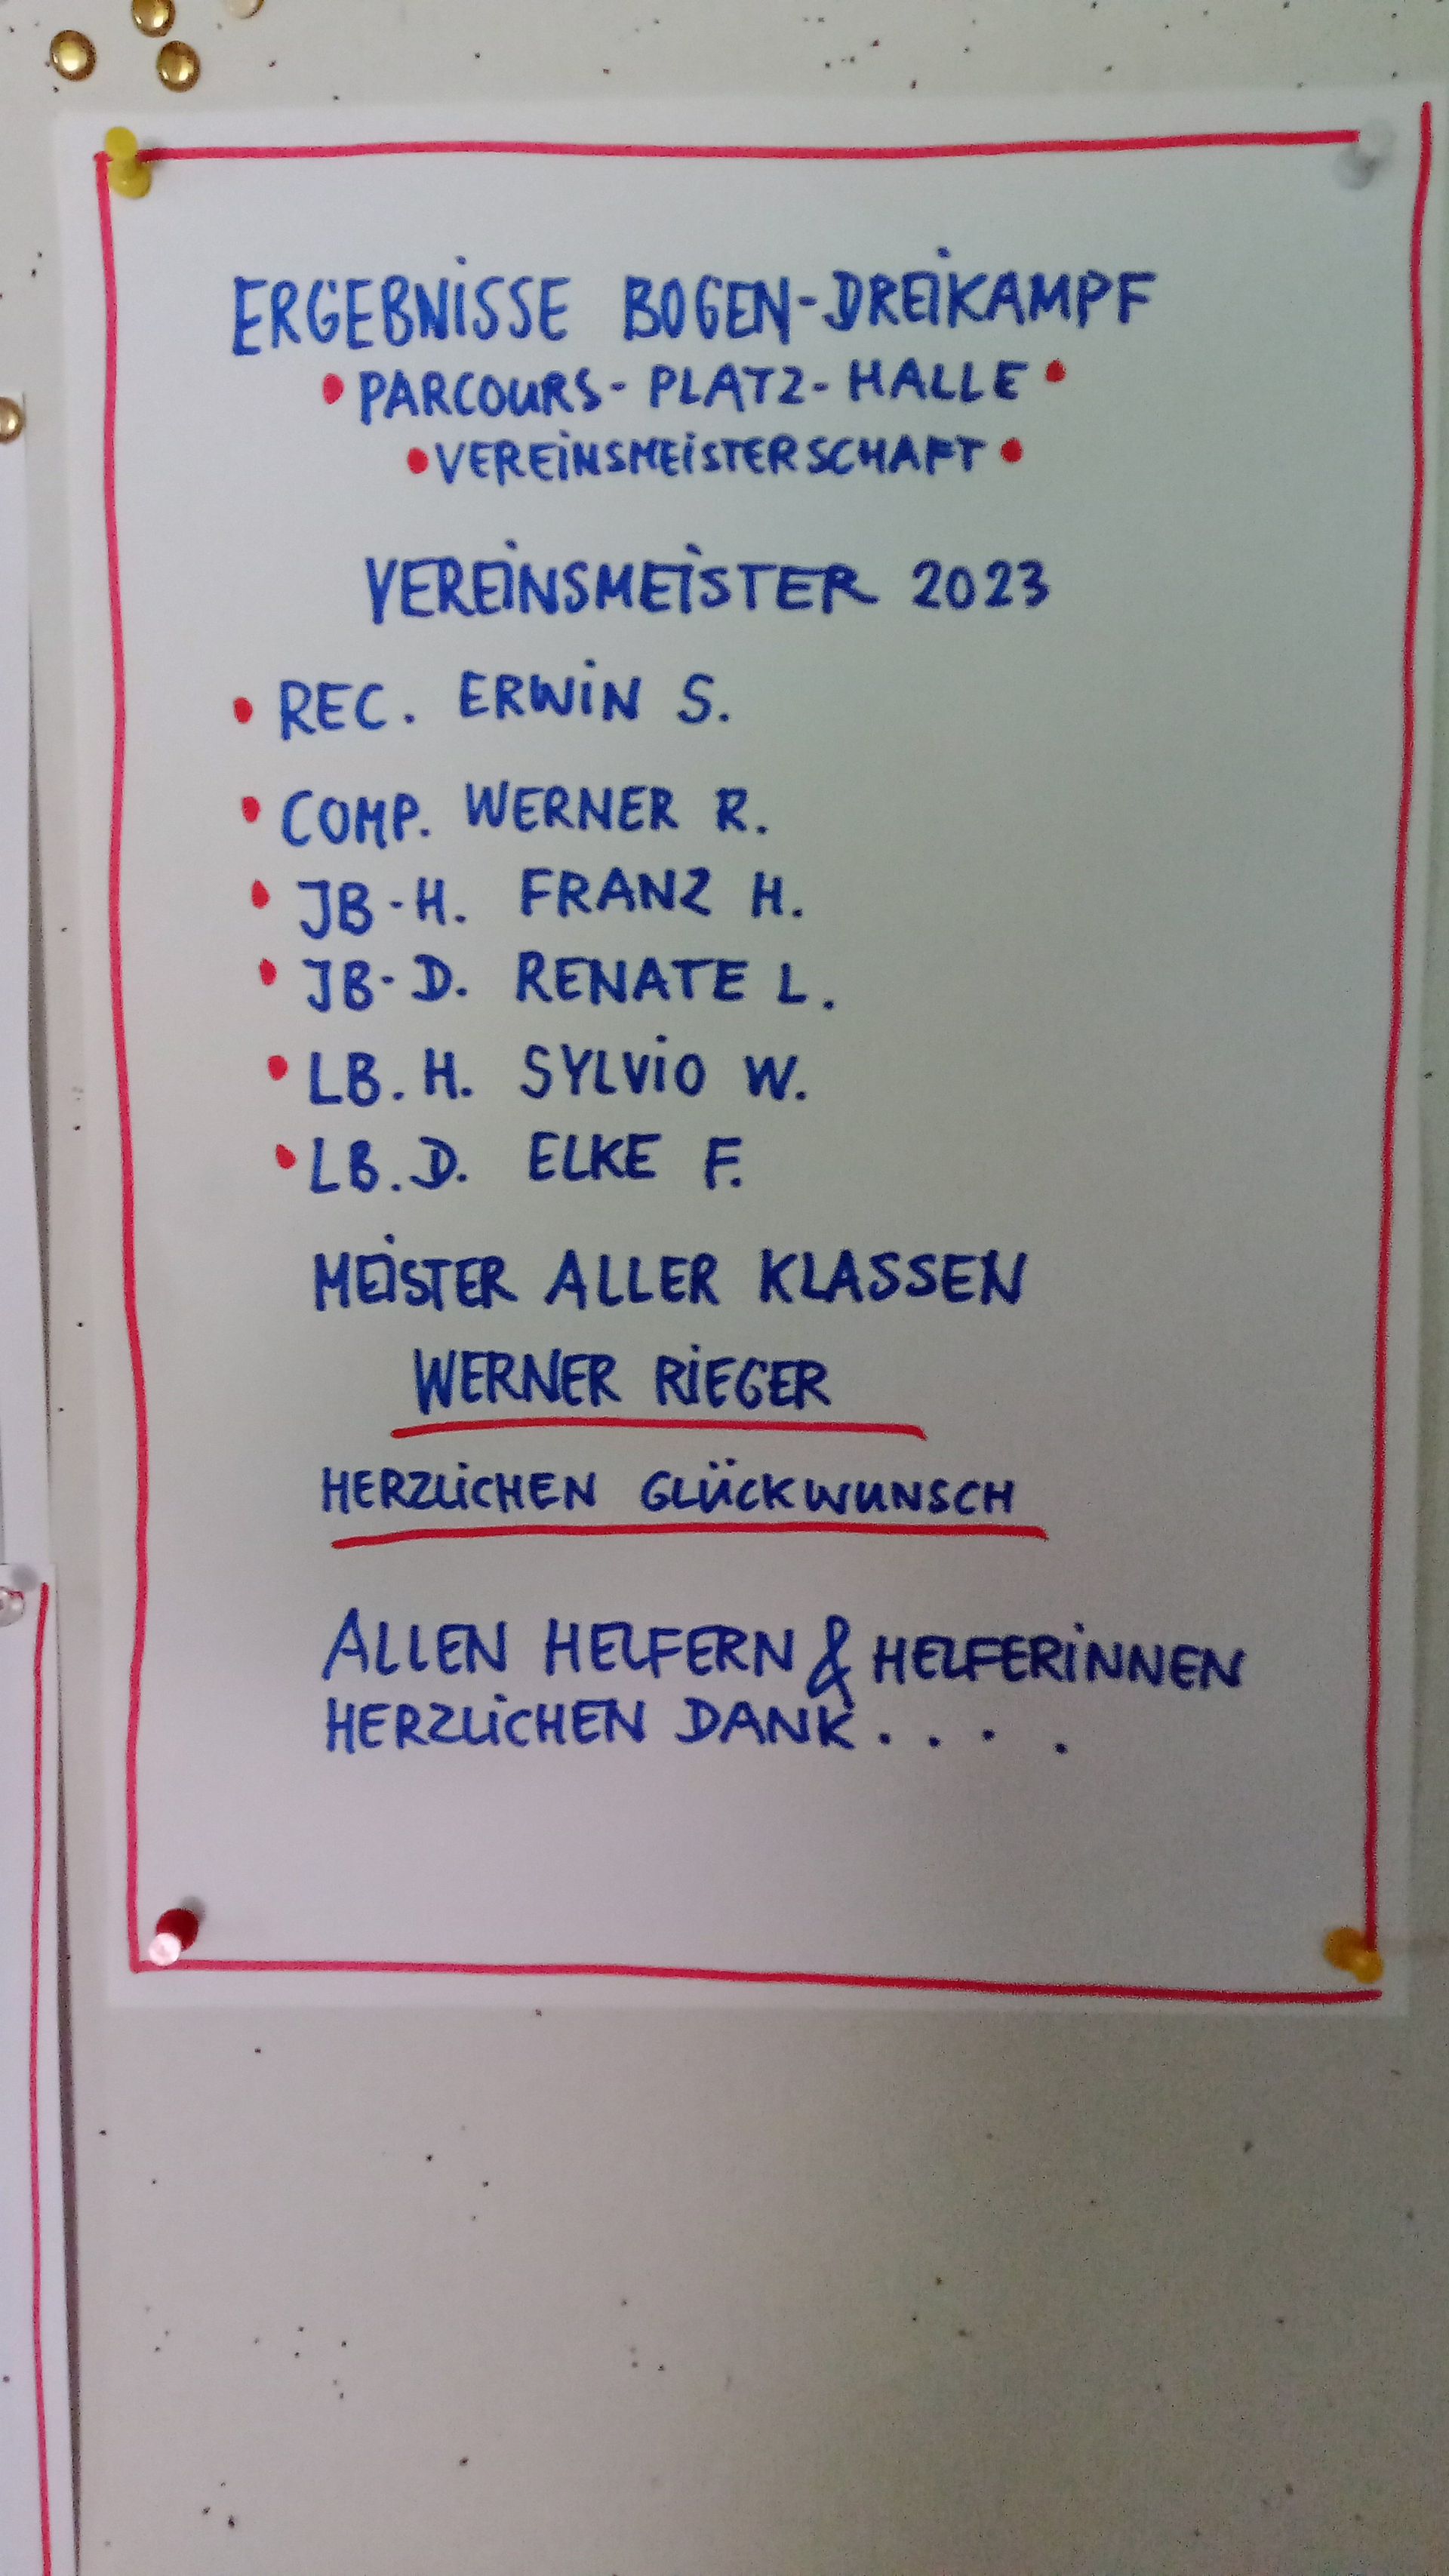 ERGEBNISSE BOGEN-DREIKAMPF
• PARCOURS - PLATZ - HALLE •
• VEREINSMEISTERSCHAFT •
VEREINSMEISTER 2023
• REC. ERWIN S.
• COMP. WERNER R.
• JB-H. FRANZ H.
• JB-D. RENATE L.
• LB.H. SYLVIO W.
• LB.D. ELKE F.
MEISTER ALLER KLASSEN
WERNER RIEGER
HERZLICHEN GLÜCKWUNSCH
ALLEN HELFERN & HELFERINNEN
HERZLICHEN DANK....